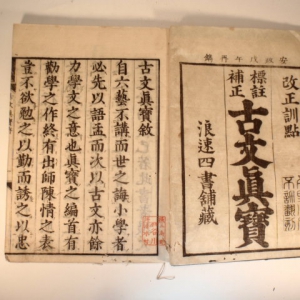 安政戊午再
改正訓點
標註
補正
古文眞寶
浪速四書舖藏
古文眞寶敘
自六藝不講而世之誨小學者
必先以語孟而次以古文亦餘
力學文之意也眞寶之編首有
勸學之作終有出師陳情之表
豈不欲勉之以勤而誘之以忠